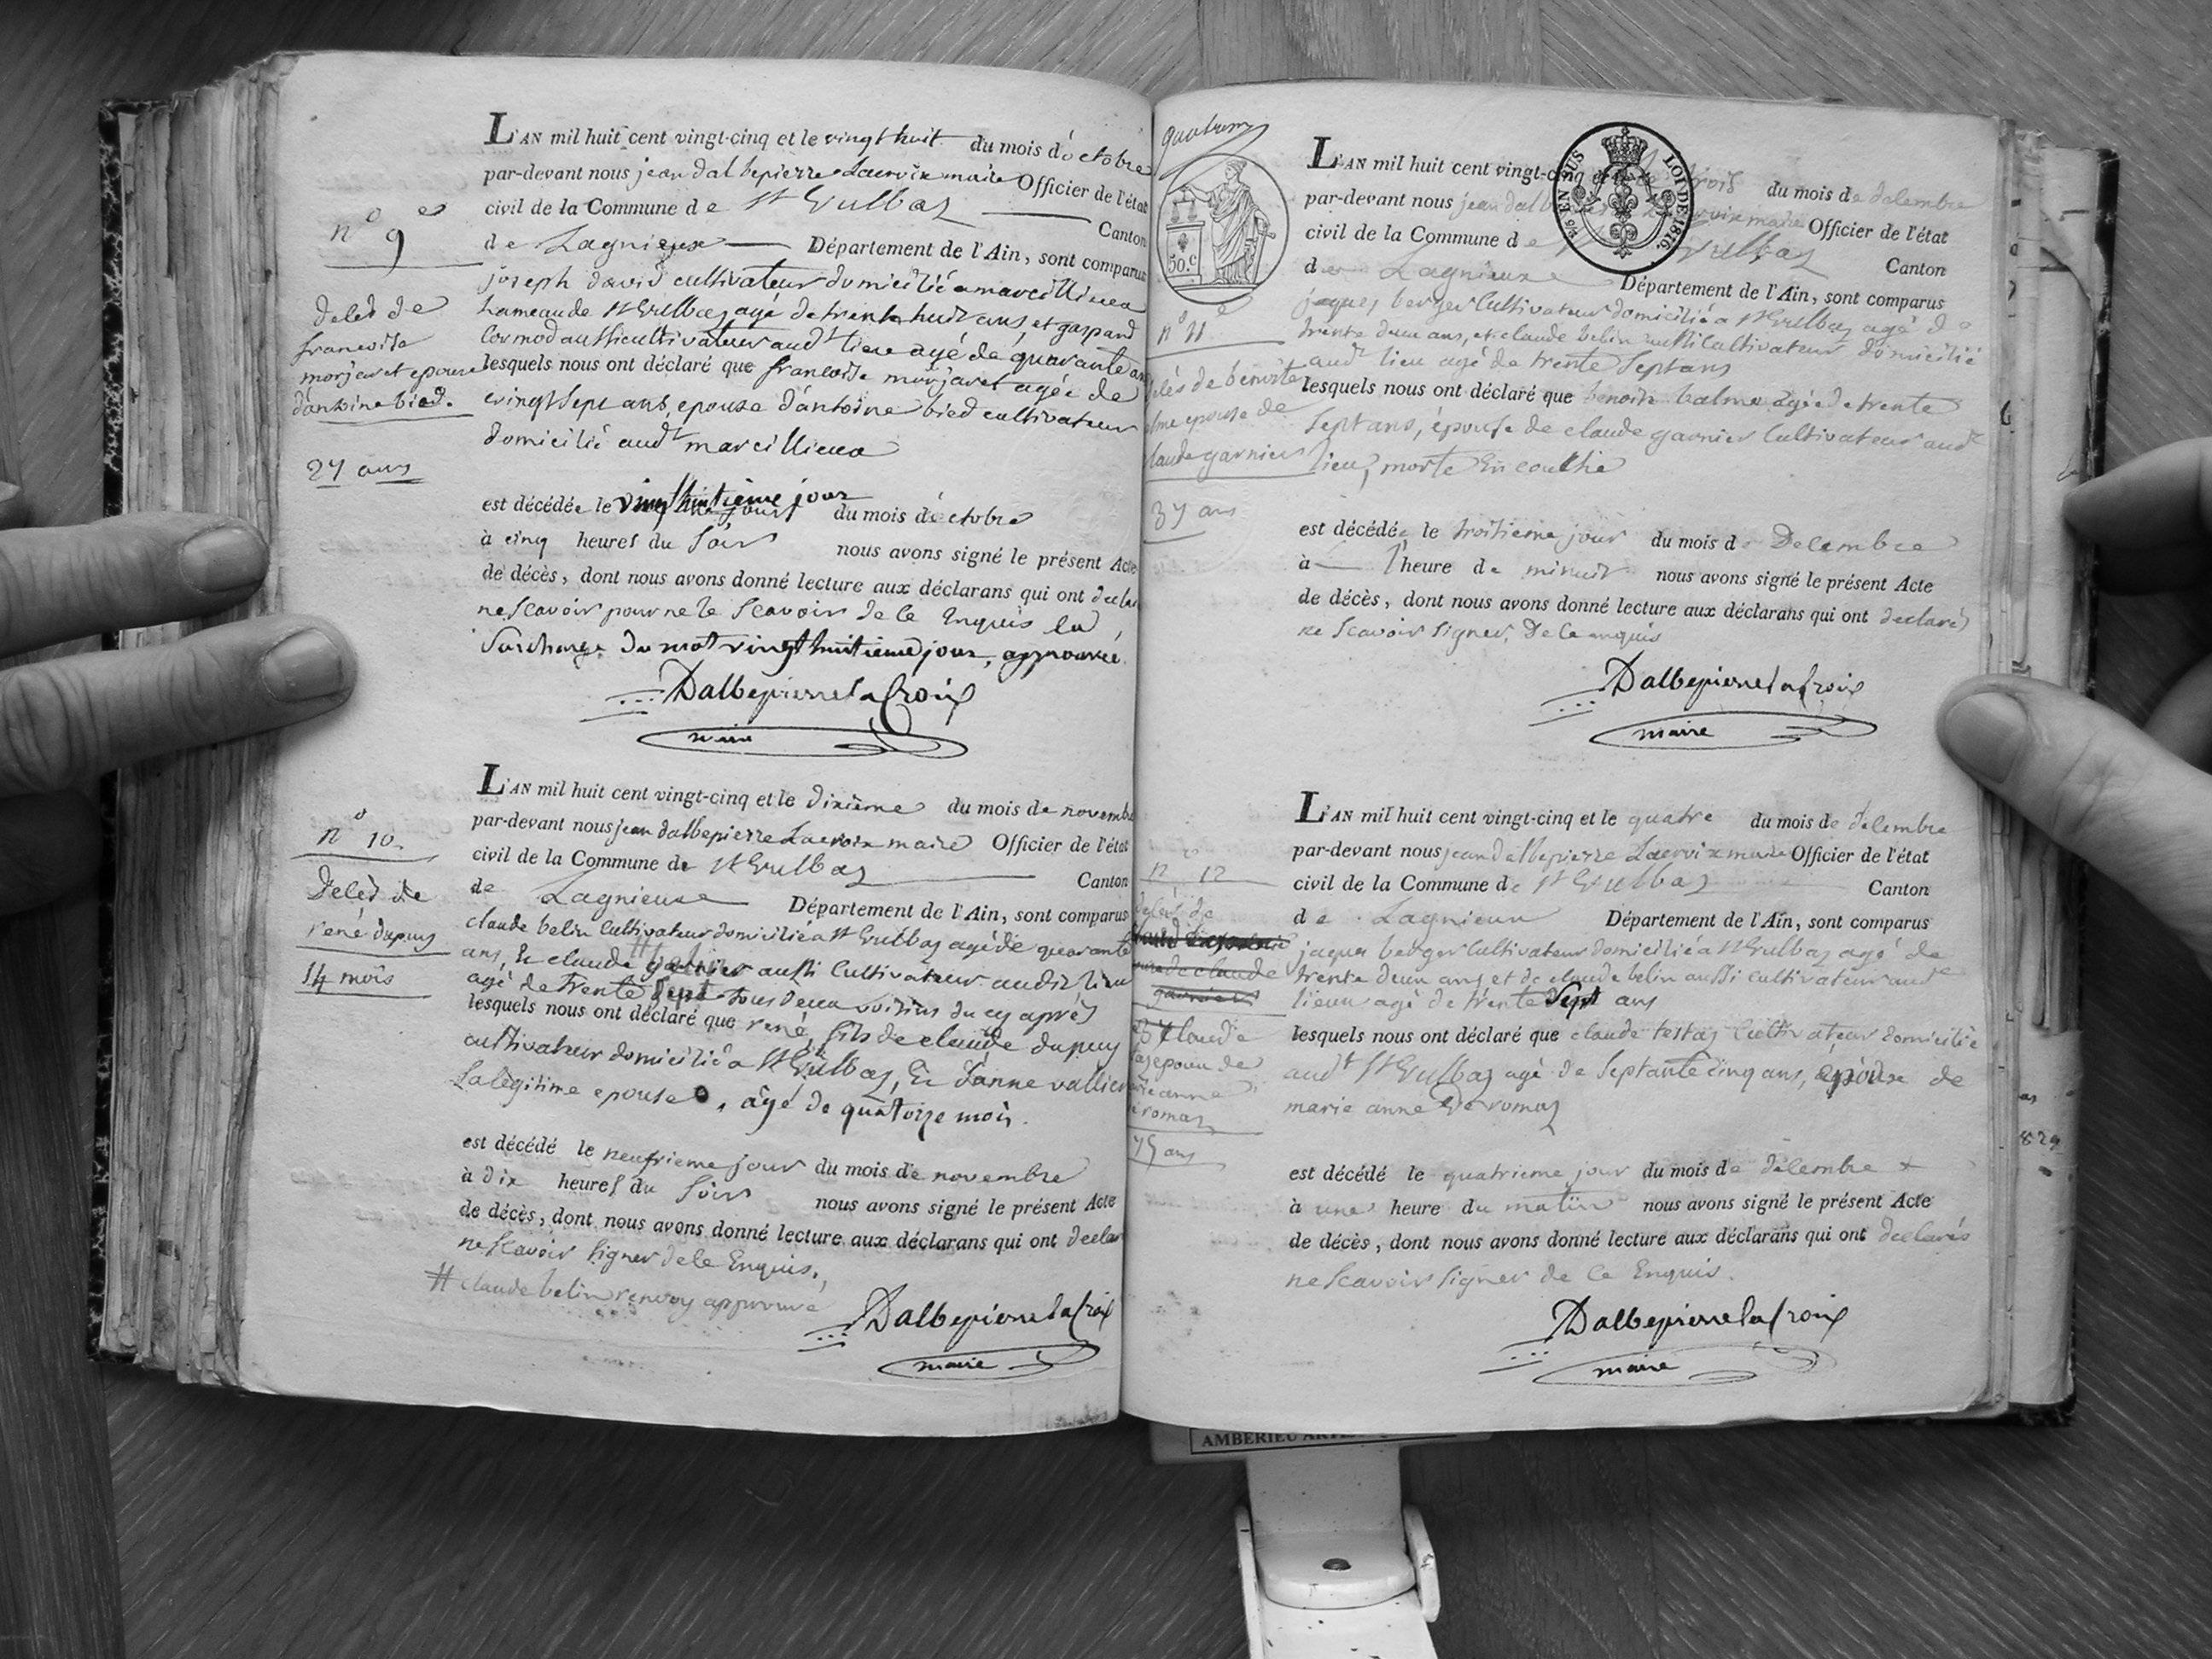 n° 9
deles de
francoise
morjaret epouse
d'antoine bied.
27 ans
L'AN mil huit cent vingt-cinq et le vingt huit du mois d'octobre
par-devant nous jean dalbepierre Lacroix maire Officier de l'état
civil de la Commune de St Vulbaz Canton
de Lagnieux Département de l'Ain, sont comparus
joseph david cultivateur domicilié a marcillieux
hameau de St Vulbaz agé de trente huit ans, et gaspard
Cormod aussi cultivateur audt lieu agé de quarante ans
lesquels nous ont déclaré que francoise morjaret agée de
vingt sept ans, epouse d'antoine bied cultivateur
domicilié audt marcillieux
est décédée le vingthuitième jour du mois d'octobre
à cinq heures du soir nous avons signé le présent Acte
de décès, dont nous avons donné lecture aux déclarans qui ont declaré
ne scavoir pour ne le scavoir de ce Enquis la
surcharge du mot vingt huitieme jour, approuvée.
Dalbepierre laCroix
maire
n° 10.
Delès de
rené dupuy
14 mois
L'AN mil huit cent vingt-cinq et le dixième du mois de novembre
par-devant nous jean dalbepierre Lacroix maire Officier de l'état
civil de la Commune de St Vulbaz Canton
de Lagnieux Département de l'Ain, sont comparus
claude belin Cultivateur domicilié a St Vulbaz agé de quarante
ans, Et claude garnier aussi Cultivateur audit lieu
agé de trente sept tous deux voisins du cy après
lesquels nous ont déclaré que rené, fils de claude dupuy
cultivateur domicilié a St Vulbaz, Et d'anne vallier
La légitime epouse, âgé de quatorze mois.
est décédé le neufvieme jour du mois de novembre
à dix heures du soir nous avons signé le présent Acte
de décès, dont nous avons donné lecture aux déclarans qui ont declaré
ne scavoir signer de ce Enquis,
# claude belin renvoy approuvé
Dalbepierre laCroix
maire
50.c
EN SUS
LOI DE 1816.
n° 11
delés de benoite
balme epouse de
claude garnier
37 ans
L'AN mil huit cent vingt-cinq et le trois du mois de delembre
par-devant nous jean dalbepierre Lacroix maire Officier de l'état
civil de la Commune de St Vulbaz Canton
de Lagnieux Département de l'Ain, sont comparus
jaques berger Cultivateur domicilié a St Vulbaz agé de
trente deux ans, et claude belin aussi Cultivateur domicilié
audt lieu agé de trente sept ans
lesquels nous ont déclaré que benoite balme agée de trente
sept ans, épouse de claude garnier Cultivateur audt
lieu, morte En couche
est décédée le troisieme jour du mois de Delembre
à l'heure de minuit nous avons signé le présent Acte
de décès, dont nous avons donné lecture aux déclarans qui ont declarés
ne scavoir signer, De Ce enquis
Dalbepierre laCroix
maire
n° 12
delés de
garnier
claude
epoux de
anne
romaz
75 ans
L'AN mil huit cent vingt-cinq et le quatre du mois de delembre
par-devant nous jean dalbepierre Lacroix maire Officier de l'état
civil de la Commune de St Vulbaz Canton
de Lagnieux Département de l'Ain, sont comparus
jaques berger Cultivateur domicilié a St Vulbaz agé de
trente deux ans et de claude belin aussi cultivateur audt
lieux agé de trente sept ans
lesquels nous ont déclaré que claude testaz Cultivateur domicilié
audt St Vulbaz agé de septante cinq ans, époux de
marie anne De romaz
est décédé le quatrieme jour du mois de delembre
à une heure du matin nous avons signé le présent Acte
de décès, dont nous avons donné lecture aux déclarans qui ont declarés
ne scavoir signer de Ce Enquis.
Dalbepierre laCroix
maire
829
AMBERIEU